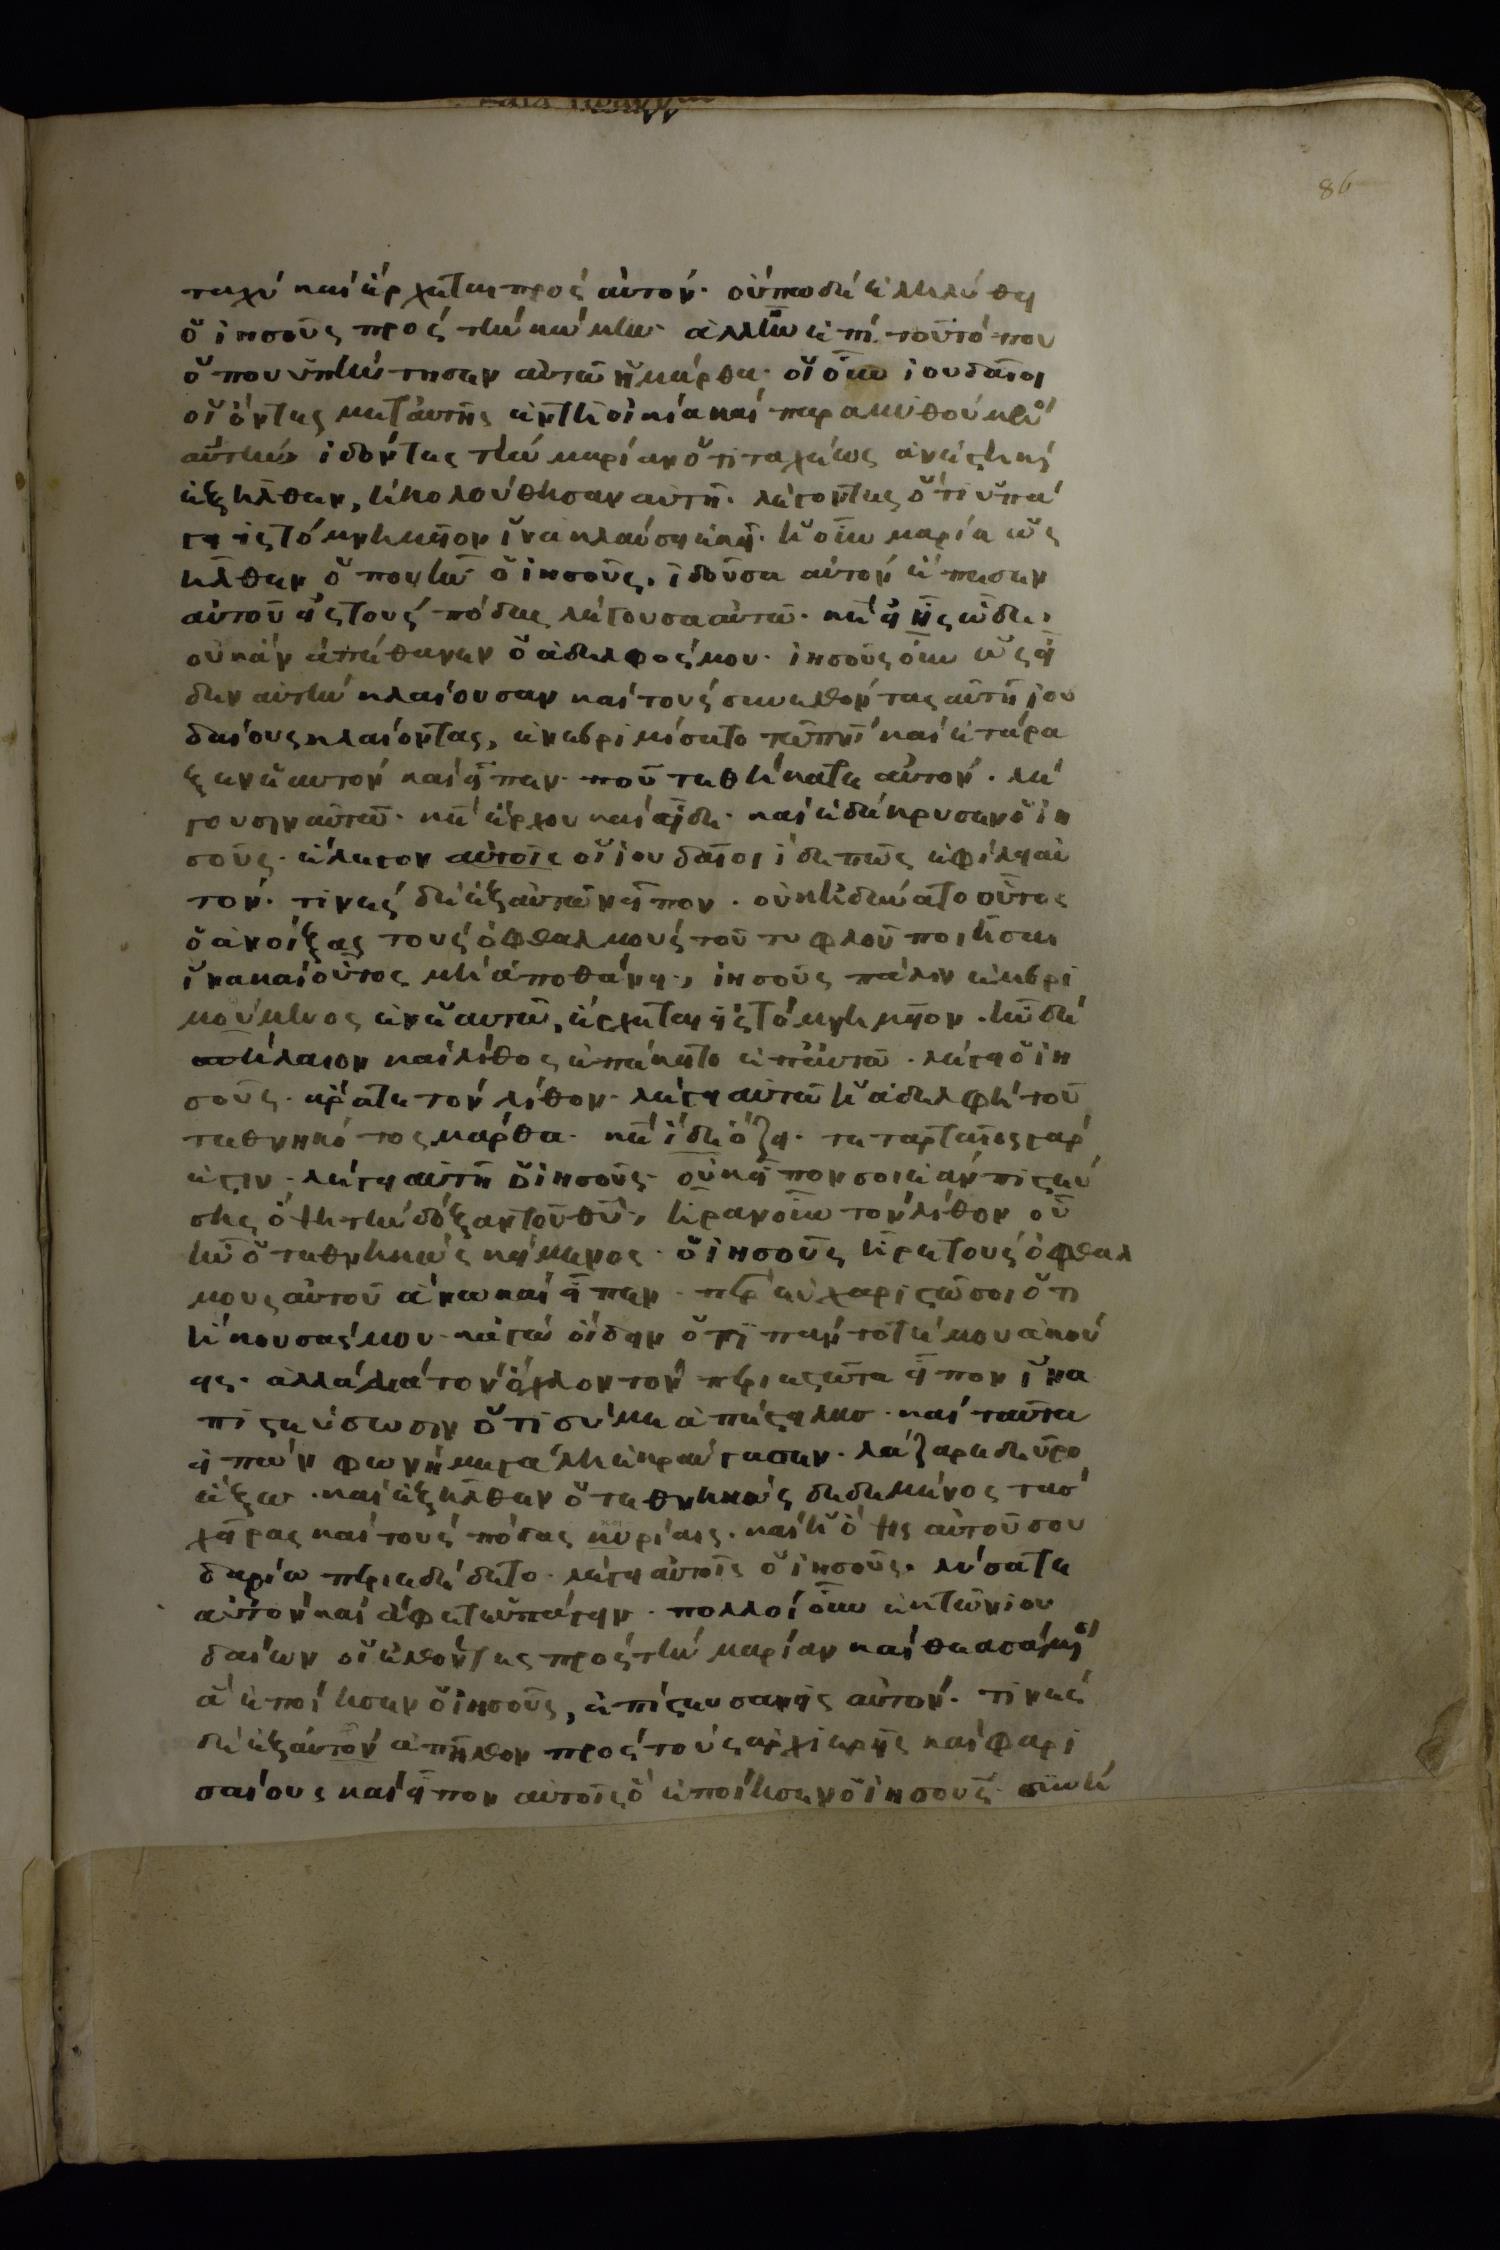 86
ταχὺ καὶ ἔρχεται πρὸς αὐτόν· οὔπω δὲ ἐληλύθει
ὁ ἰησοῦς πρὸς τὴν κώμην· ἀλλ' ἦν ἐπὶ τοῦ τόπου
ὅπου ὑπήντησεν αὐτῶ ἡ μάρθα· οἱ οὖν ἰουδαῖοι
οἱ ὄντες μετ' αὐτῆς ἐν τῆ οἰκία καὶ παραμυθούμενοι
αὐτὴν ἰδόντες τὴν μαρίαν ὅτι ταχέως ἀνέστη καὶ
ἐξῆλθεν, ἠκολούθησαν αὐτῆ· λέγοντες ὅτι ὑπά
γει εἰς τὸ μνημεῖον ἵνα κλαύση ἐκεῖ· ἡ οὖν μαρία ὡς
ἦλθεν ὅπου ἦν ὁ ἰησοῦς, ἰδοῦσα αὐτὸν ἔπεσεν
αὐτοῦ εἰς τοὺς πόδας λέγουσα αὐτῶ· κε εἰ ἦς ὧδε,
οὐκ ἂν ἀπέθανεν ὁ ἀδελφός μου· ἰησοῦς οὖν ὡς εἶ
δεν αὐτὴν κλαίουσαν καὶ τοὺς συνελθόντας αὐτῆ ἰου
δαίους κλαίοντας, ἐνεβριμήσατο τῶ πνι καὶ ἐτάρα
ξεν ἑαυτὸν καὶ εἶπεν· ποῦ τεθήκατε αὐτόν· λέ
γουσιν αὐτῶ· κε ἔρχου καὶ ἴδε· καὶ ἐδάκρυσεν ὁ ἰη
σοῦς· ἔλεγον αὐτοῖς οἱ ἰουδαῖοι ἴδε πῶς ἐφίλει αὐ
τόν· τινὲς δὲ ἐξ αὐτῶν εἶπον· οὐκ ἠδύνατο οὗτος
ὁ ἀνοίξας τοὺς ὀφθαλμοὺς τοῦ τυφλοῦ ποιῆσαι
ἵνα καὶ οὗτος μὴ ἀποθάνη, ἰησοῦς πάλιν ἐμβρι
μούμενος ἐν ἑαυτῶ, ἔρχεται εἰς τὸ μνημεῖον· ἦν δὲ
σπήλαιον καὶ λίθος ἐπέκειτο ἐπ' αὐτῶ· λέγει ὁ ἰη
σοῦς· ἄρατε τὸν λίθον· λέγει αὐτῶ ἡ ἀδελφὴ τοῦ
τεθνηκότος μάρθα· κε ἤδη ὄζει· τεταρταῖος γάρ
ἐστιν· λέγει αὐτῆ ὁ ἰησοῦς· οὐκ εἶπόν σοι ἐὰν πιστεύ
σης ὄψη τὴν δόξαν τοῦ θυ, ἦραν οὖν τὸν λίθον οὗ
ἦν ὁ τεθνηκὼς κείμενος· ὁ ἰησοῦς ἦρε τοὺς ὀφθαλ
μοὺς αὐτοῦ ἄνω καὶ εἶπεν· περ εὐχαριστῶ σοι ὅτι
ἤκουσάς μου· κἀγὼ ᾔδειν ὅτι πάντοτέ μου ἀκού
εις· ἀλλὰ διὰ τὸν ὄχλον τὸν περιεστῶτα εἶπον ἵνα
πιστεύσωσιν ὅτι σύ με ἀπέστειλας· καὶ ταῦτα
εἰπὼν φωνῆ μεγάλη ἐκραύγασεν· λάζαρε δεῦρο
ἔξω· καὶ ἐξῆλθεν ὁ τεθνηκὼς δεδεμένος τὰς
χεῖρας καὶ τοὺς πόδας κυρίαις· καὶ ἡ ὄψις αὐτοῦ σου
δαρίω περιεδέδετο· λέγει αὐτοῖς ὁ ἰησοῦς· λύσατε
αὐτὸν καὶ ἄφετε ὑπάγειν· πολλοὶ οὖν ἐκ τῶν ἰου
δαίων οἱ ἐλθόντες πρὸς τὴν μαρίαν καὶ θεασάμενοι
ἃ ἐποίησεν ὁ ἰησοῦς, ἐπίστευσαν εἰς αὐτόν· τινὲς
δὲ ἐξ αὐτῶν ἀπῆλθον πρὸς τοὺς ἀρχιερεῖς καὶ φαρι
σαίους καὶ εἶπον αὐτοῖς ὃ ἐποίησεν ὁ ἰησοῦς· συνή